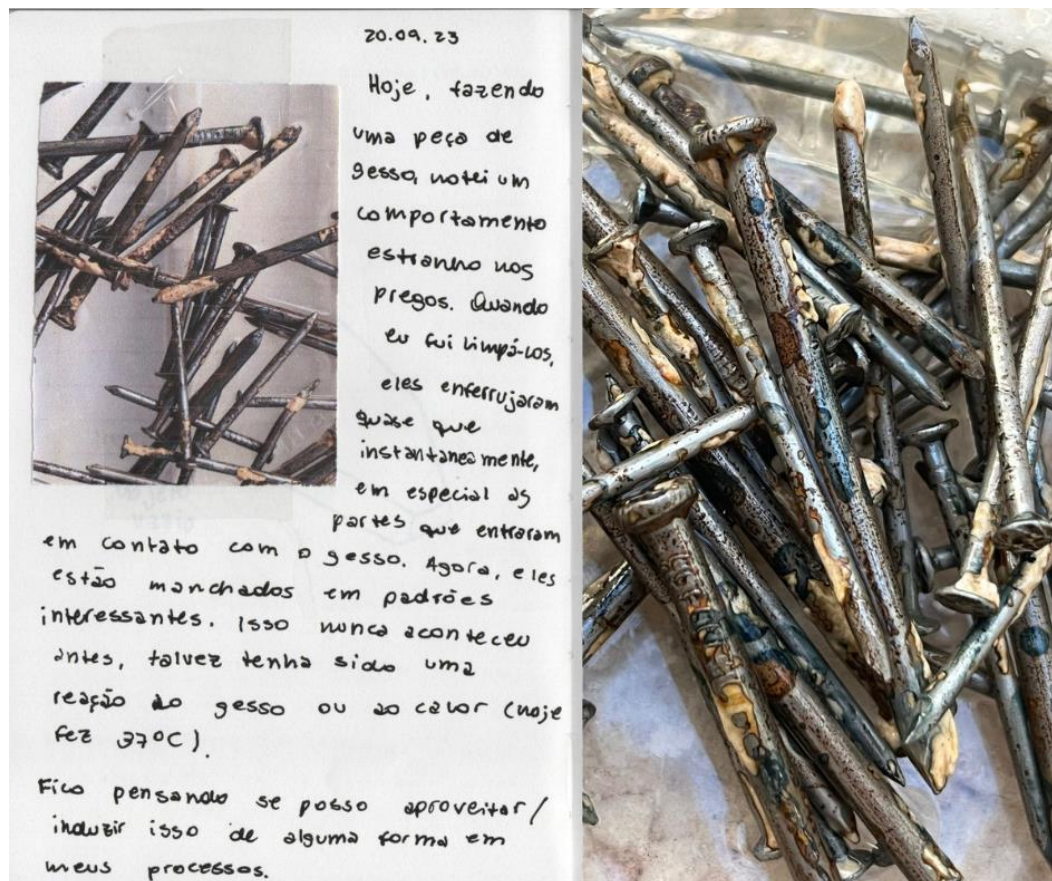 20.09.23
Hoje, fazendo
uma peça de
gesso, notei um
comportamento
estranho nos
pregos. Quando
eu fui limpá-los,
eles enferrujaram
quase que
instantaneamente,
em especial as
partes que entraram
em contato com o gesso. Agora, eles
estão manchados em padrões
interessantes. Isso nunca aconteceu
antes, talvez tenha sido uma
reação ao gesso ou ao calor (hoje
fez 37°C).
Fico pensando se posso aproveitar/
induzir isso de alguma forma em
meus processos.